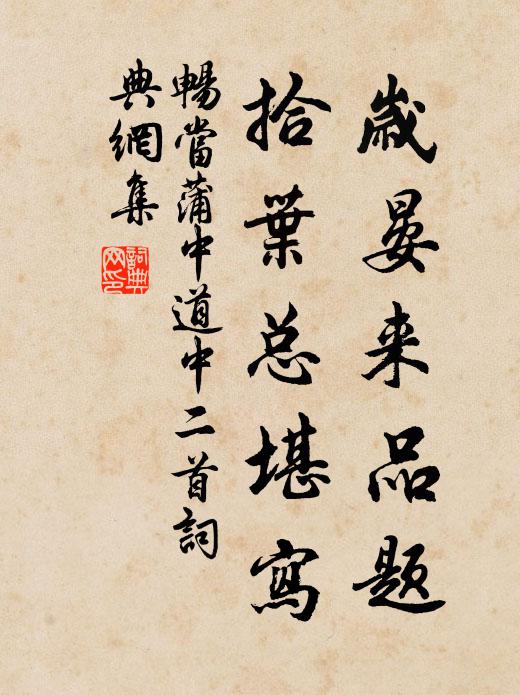 歲晏来品題
拾葉总堪寫
暢當蒲中道中二首詞
典網集
詞典
网印